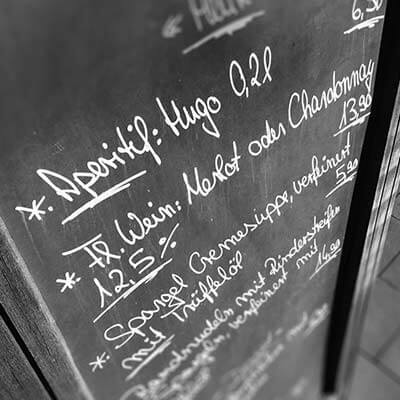 *. Aperitif: Hugo 0,2l
*. Fl. Wein: Merlot oder Chardonnay
12,5% 13,90
*. Spargel Cremesuppe, verfeinert
mit Trüffelöl 5,90
*. Bandnudeln mit Rinderstreifen
verfeinert mit 14,90